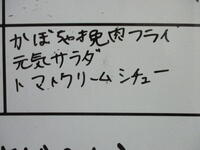 かぼちゃ挽肉フライ
元気サラダ
トマトクリームシチュー